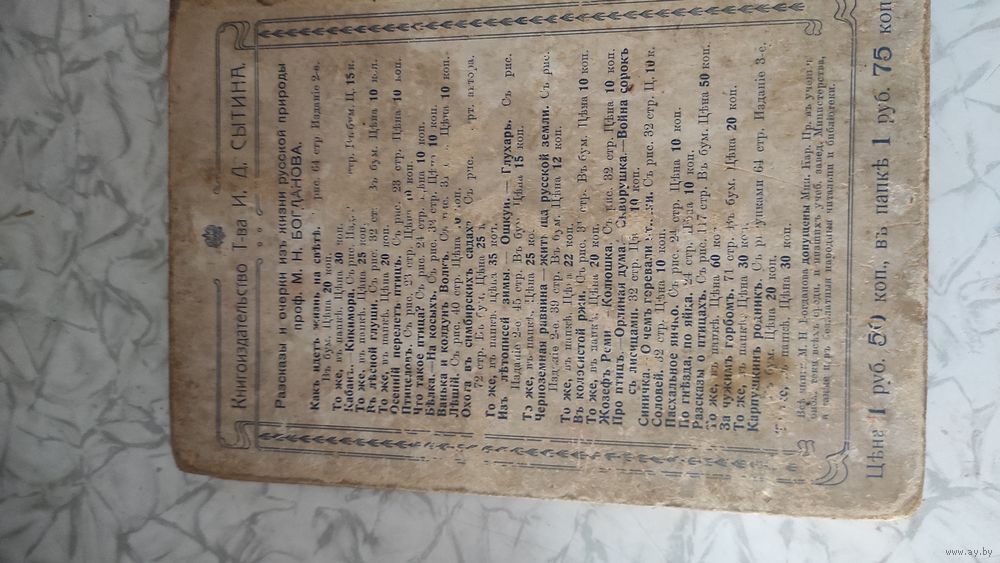 Книгоиздательство Т-ва И. Д. СЫТИНА.
Разсказы и очерки изъ жизни русской природы
проф. М. Н. БОГДАНОВА.
Какъ идетъ жизнь на свѣтѣ. рис. 64 стр. Изданіе 2-е.
Въ бум. Цѣна 20 коп.
То же, въ папкѣ. Цѣна 30 коп.
Кабанъ. Кикимора. Съ рис. стр. Ц. 15 к.
То же, въ папкѣ. Цѣна 25 коп.
Въ лѣсной глуши. Съ рис. 32 ст. Въ бум. Цѣна 10 коп.
То же, въ папкѣ. Цѣна 20 коп.
Осенній перелетъ птицъ. Съ рис. 23 стр. Цѣна 10 коп.
Птицеловъ. Съ рис. 23 стр. Цѣна 10 коп.
Что такое птица? Съ рис. 24 стр. Цѣна 10 коп.
Бѣлка.—На косыхъ. Съ рис. стр. Цѣна 10 коп.
Ванька и колдунъ Волкъ. Съ рис. Цѣна 10 коп.
Лѣшій. Съ рис. 40 стр. Цѣна коп.
Охота въ симбирскихъ садахъ. Съ рис. автора.
72 стр. Въ бум. Цѣна 25 к.
То же, въ папкѣ. Цѣна 35 коп.
Изъ лѣтописей зимы.— Ошкуи.— Глухарь. Съ рис.
Изданіе 2-е. 45 стр. Въ бум. Цѣна 15 коп.
То же, въ папкѣ. Цѣна 25 коп.
Черноземная равнина—житница русской земли. Съ рис.
Изданіе 2-е. 39 стр. Въ бум. Цѣна 12 коп.
То же, въ папкѣ. Цѣна 22 коп.
Въ колосистой ржи. Съ рис. стр. Въ бум. Цѣна 10 коп.
То же, въ папкѣ. Цѣна 20 коп.
Жозефъ Реми. Колюшка. Съ рис. 32 стр. Цѣна 10 коп.
Про птицъ.—Орлиная дума. Скворушка.—Война сорокъ
съ лисицами. 32 стр. Цѣна 10 коп.
Синичка. О чемъ горевали Съ рис. 32 стр. Ц. 10 к.
Соловей. 32 стр. Цѣна 10 коп.
Пасхальное яичко. Съ рис. 24 стр. Цѣна 10 коп.
Ни гнѣзда, ни яйца. 24 стр. Цѣна 10 коп.
Разсказы о птицахъ. Съ рис. 117 стр. Въ бум. Цѣна 50 коп.
То же, въ папкѣ. Цѣна 60 коп.
За чужимъ горбомъ. 71 стр. Въ бум. Цѣна 20 коп.
То же, въ папкѣ. Цѣна 30 коп.
Карпушкинъ родникъ. Съ рисунками 64 стр. Изданіе 3-е.
Въ бум. Цѣна 20 коп.
То же, въ папкѣ. Цѣна 30 коп.
Всѣ книги М. Н. Богданова допущены Мин. Нар. Пр. въ учен.
библ. всѣхъ средн. и низшихъ учеб. завед. Министерства,
а также и въ безплатныя народныя читальни и библіотеки.
Цѣна 1 руб. 50 коп., въ папкѣ 1 руб. 75 коп
www.ay.by